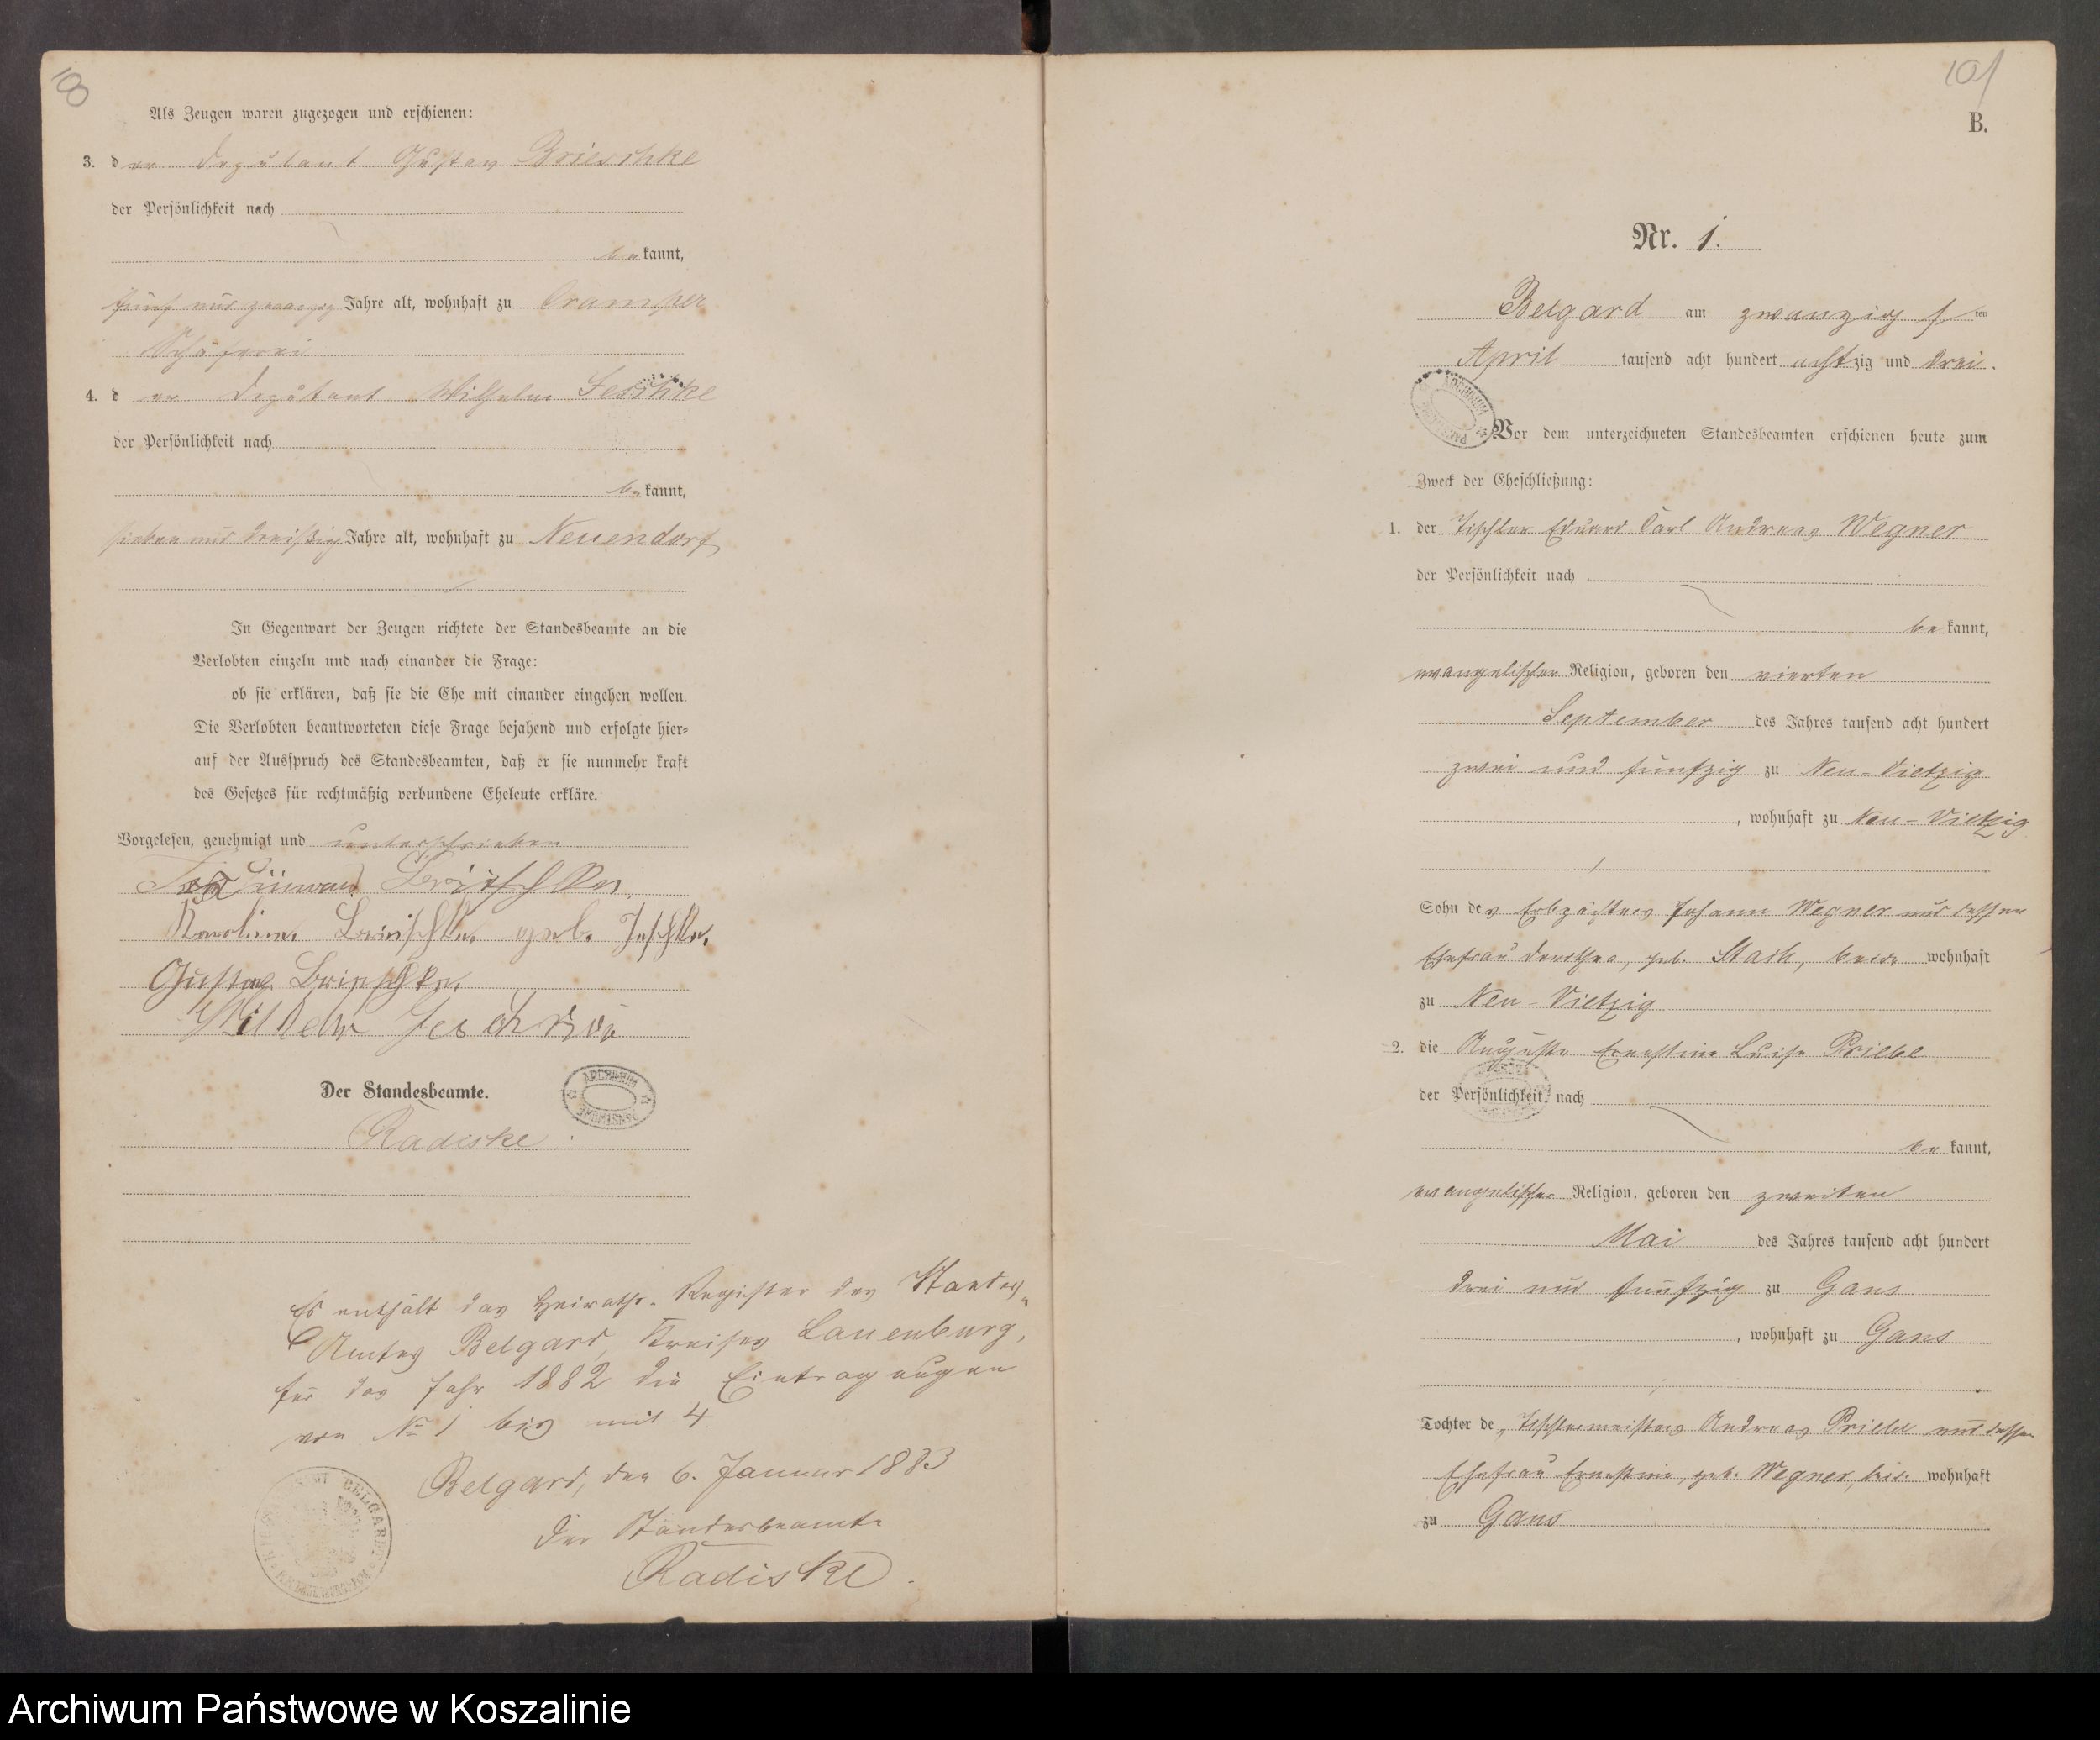 Als Zeugen waren zugezogen und erschienen:
3. der Deputant Gustav Brieschke
der Persönlichkeit nach
bekannt,
fünf und zwanzig Jahre alt, wohnhaft zu Cramper
Schäferei
4. der Deputant Wilhelm Jeschke
der Persönlichkeit nach
bekannt,
sieben und dreißig Jahre alt, wohnhaft zu Neuendorf
In Gegenwart der Zeugen richtete der Standesbeamte an die
Verlobten einzeln und nach einander die Frage:
ob sie erklären, daß sie die Ehe mit einander eingehen wollen.
Die Verlobten beantworteten diese Frage bejahend und erfolgte hier-
auf der Ausspruch des Standesbeamten, daß er sie nunmehr kraft
des Gesetzes für rechtmäßig verbundene Eheleute erkläre.
Vorgelesen, genehmigt und unterschrieben
Brieschke
Karoline Brieschke geb. Jeschke.
Gustav Brieschke
Wilhelm
Der Standesbeamte.
Radiske
ARCHIWUM PAŃSTWOWE
Es enthält das Heiraths-Register des Standes-
Amtes Belgard, Kreises Lauenburg,
für das Jahr 1882 die Eintragungen
von No 1 bis mit 4.
Belgard, den 6. Januar 1883
Der Standesbeamte
Radiske.
101
B.
Nr. 1.
Belgard am zwanzigsten
April tausend acht hundert achtzig und drei.
ARCHIWUM
Vor dem unterzeichneten Standesbeamten erschienen heute zum
Zweck der Eheschließung:
1. der Tischler Eduard Carl Andreas Wegner
der Persönlichkeit nach
bekannt,
evangelischer Religion, geboren den vierten
September des Jahres tausend acht hundert
zwei und fünfzig zu Neu-Vietzig
, wohnhaft zu Neu-Vietzig
Sohn des Erbpächters Johann Wegner und dessen
Ehefrau Dorothea, geb. Stach, beide wohnhaft
zu Neu-Vietzig
2. die Auguste Ernestine Luise Priebe
der Persönlichkeit nach
bekannt,
evangelischer Religion, geboren den zweiten
Mai des Jahres tausend acht hundert
drei und fünfzig zu Gans
, wohnhaft zu Gans
Tochter des Tischlermeisters Andreas Priebe und dessen
Ehefrau Ernestine, geb. Wegner, beide wohnhaft
zu Gans
Archiwum Państwowe w Koszalinie